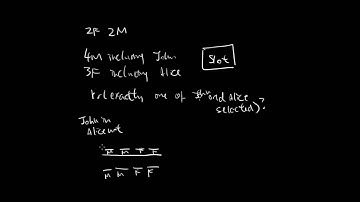 2F 2M
4M including John
3F including Alice
Slot
Pr(exactly one of John and Alice
selected)?
John in
Alice out
M M F F
M M F F